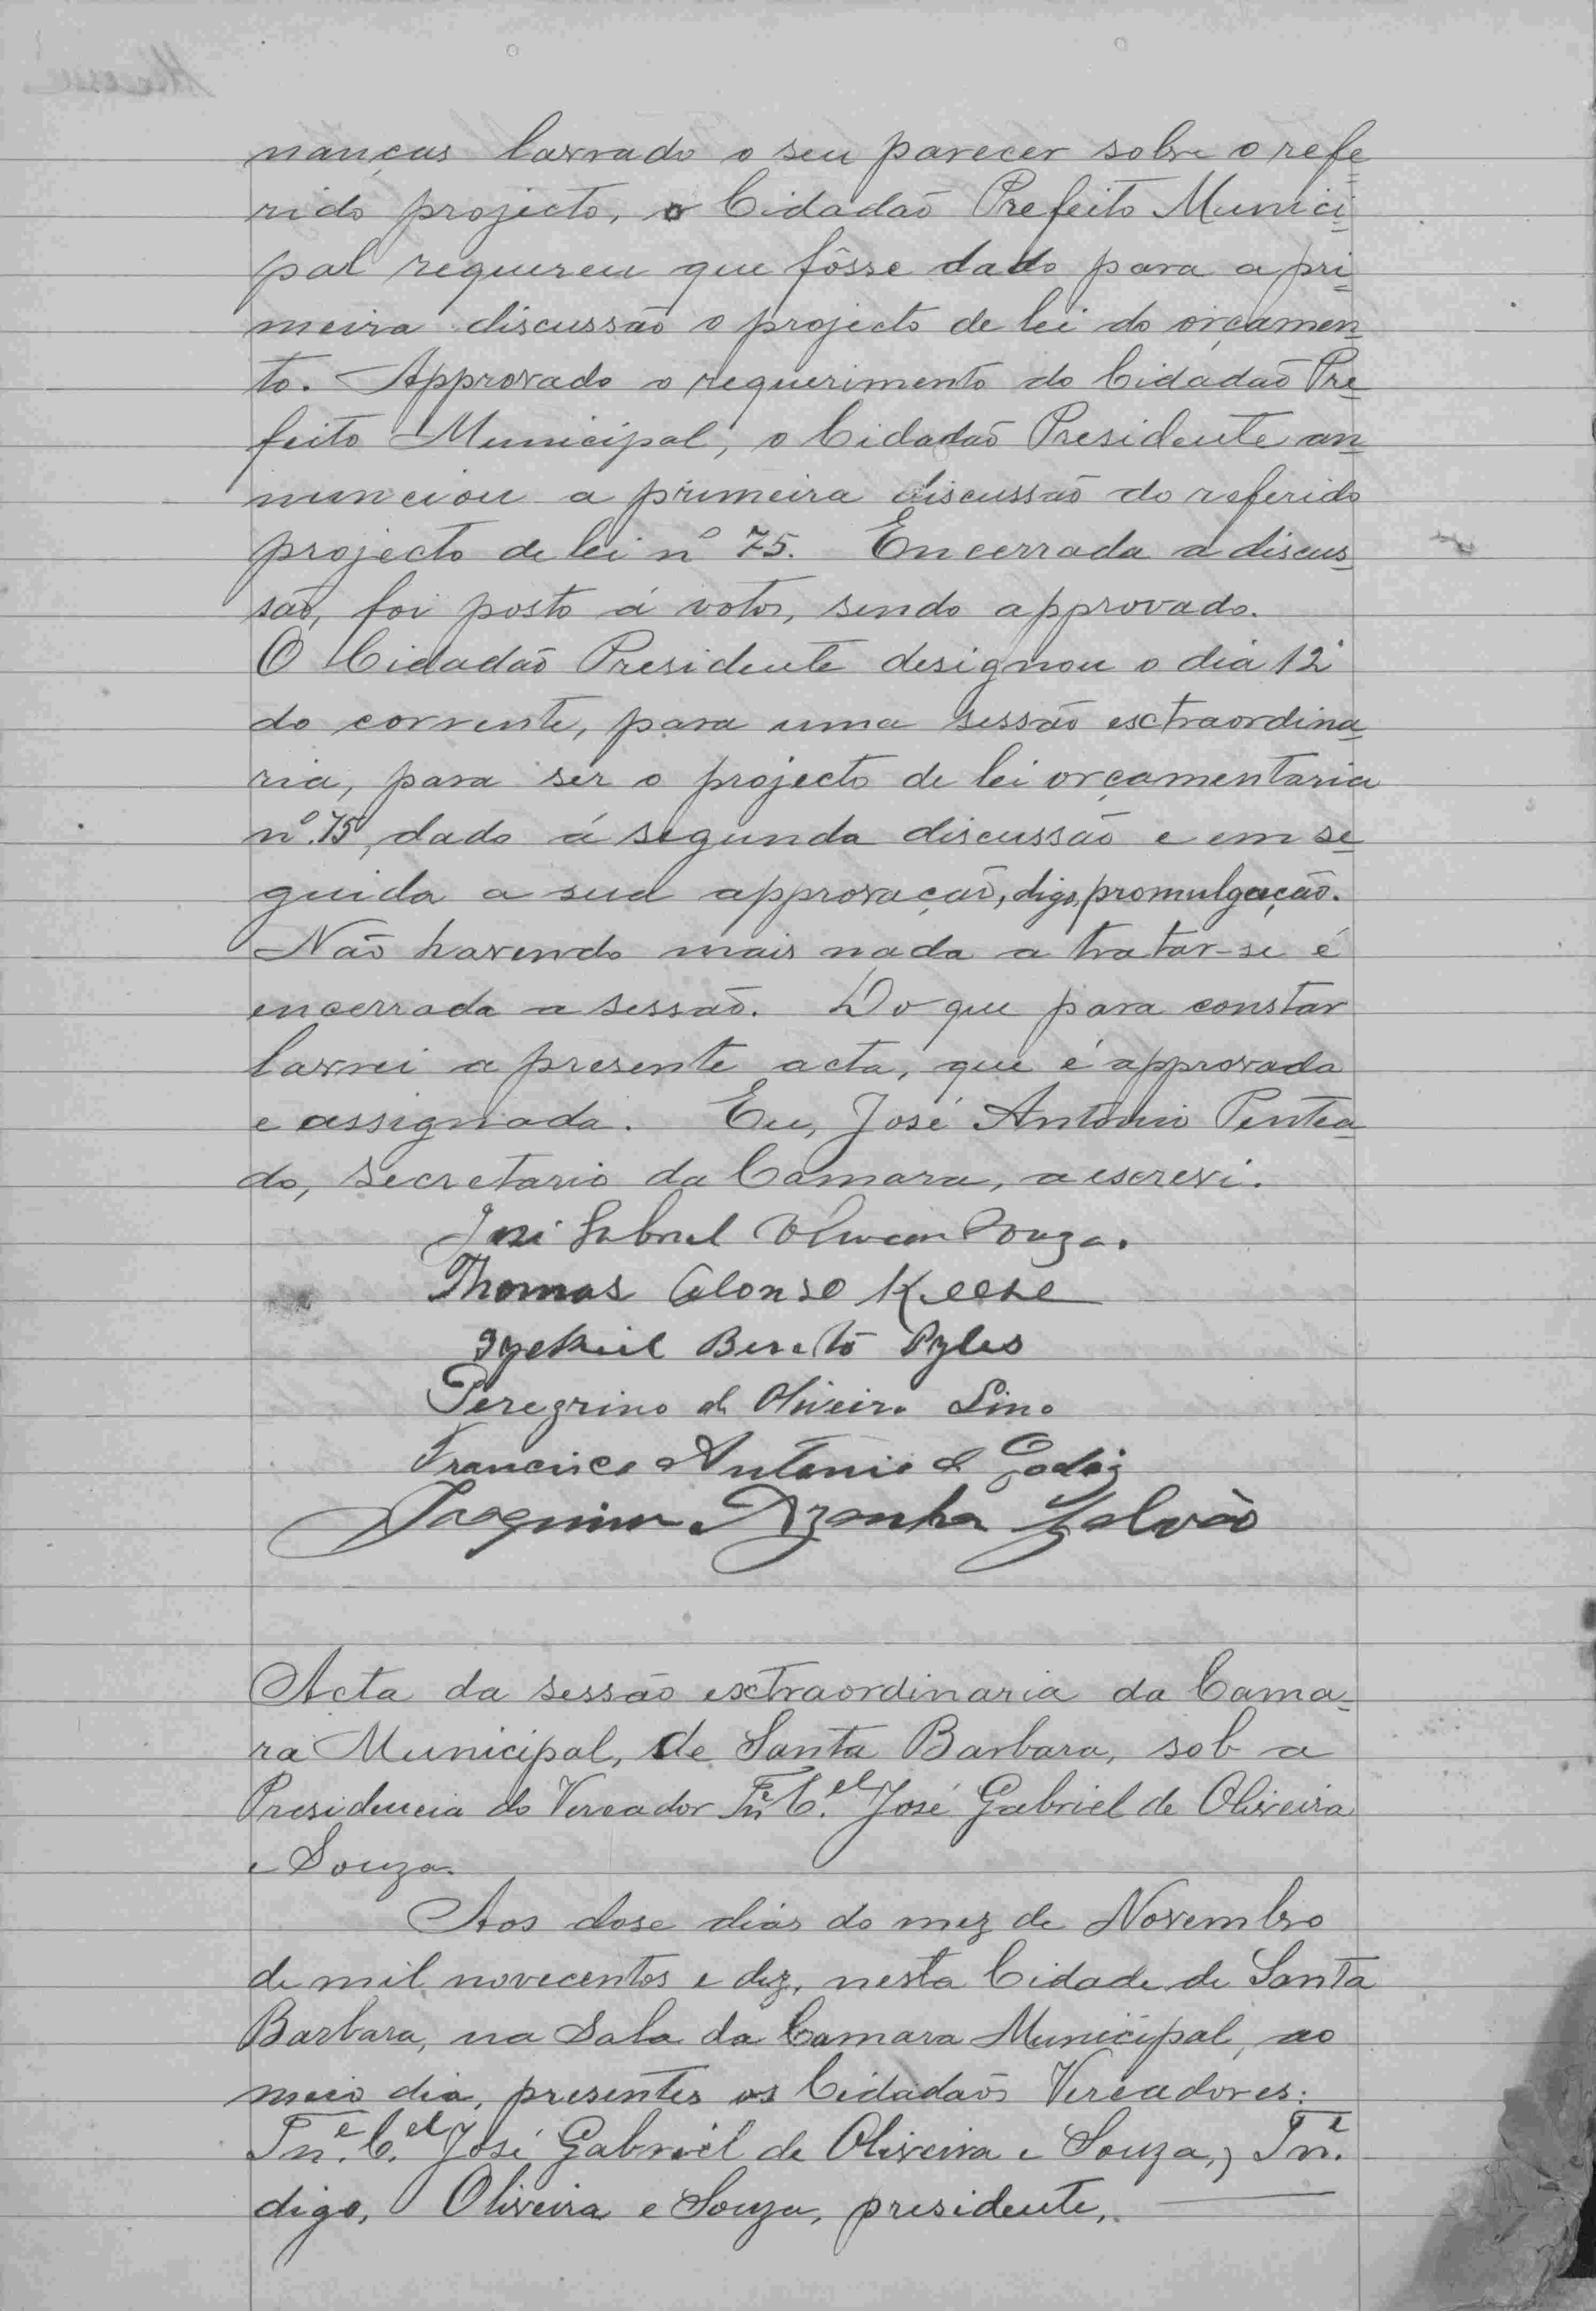 nanças lavrado o seu parecer sobre o refe
rido projecto, o Cidadão Prefeito Munici
pal requereu que fôsse dado para a pri
meira discussão o projecto de lei do orçamen
to. Approvado o requerimento do Cidadão Pre
feito Municipal, o Cidadão Presidente an
nunciou a primeira discussão do referido
projecto de lei nº 75. Encerrada a discus
são, foi posto á votos, sendo approvado.
O Cidadão Presidente designou o dia 12
do corrente, para uma sessão extraordina
ria, para ser o projecto de lei orçamentaria
nº 75, dado á segunda discussão e em se
guida a sua approvação, digo, promulgação.
Não havendo mais nada a tratar-se é
encerrada a sessão. Do que para constar
lavrei a presente acta, que é approvada
e assignada. Eu, José Antonio Pentea
do, secretario da Camara, a escrevi.
José Gabriel Oliveira Souza.
Thomas Alonso Keese
Izekiel Beneto Pyles
Peregrino de Oliveira Lino
Francisco Antonio de Godoy
Joaquim Azanha Galvão
Acta da sessão extraordinaria da Cama-
ra Municipal, de Santa Barbara, sob a
Presidencia do Vereador Tnᵉ C.ᵉˡ José Gabriel de Oliveira
e Souza.
Aos dose dias do mez de Novembro
de mil novecentos e dez, nesta Cidade de Santa
Barbara, na Sala da Camara Municipal, ao
meio dia, presentes os Cidadãos Vereadores:
Tn.ᵉ C.ᵉˡ José Gabriel de Oliveira e Souza, Tn.ᵉ
digo, Oliveira e Souza, presidente,